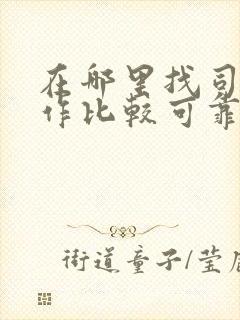 在哪里找司
作比较可靠
街道童子/莹